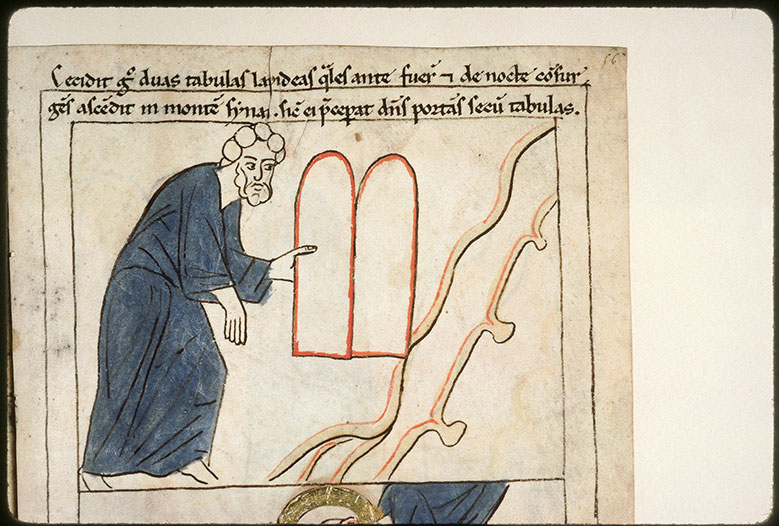 Cecidit g̊ duas tabulas lapideas q̄les ante fuer̄ ⁊ de nocte cōsur
gēs ascēdit in montē syna. sic̄ ei p̄cep̄at dn̄s portās secū tabulas.
56